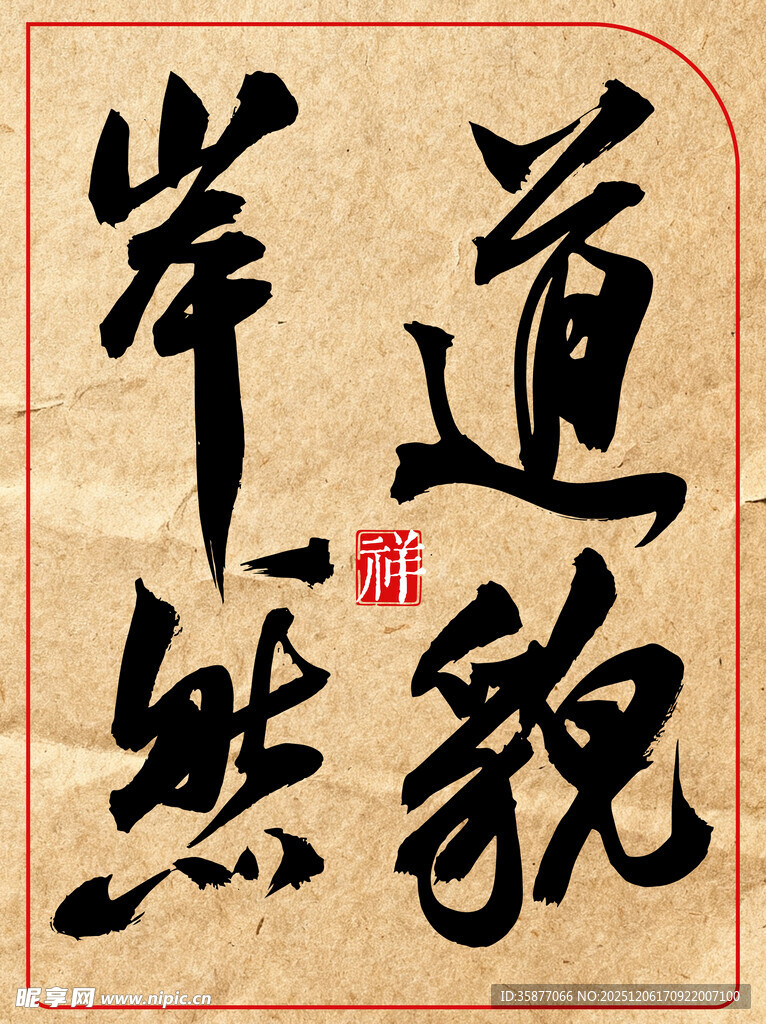 道貌
岸然
祥
昵享网 www.nipic.cn
ID:35877066 NO:20251206170922007100